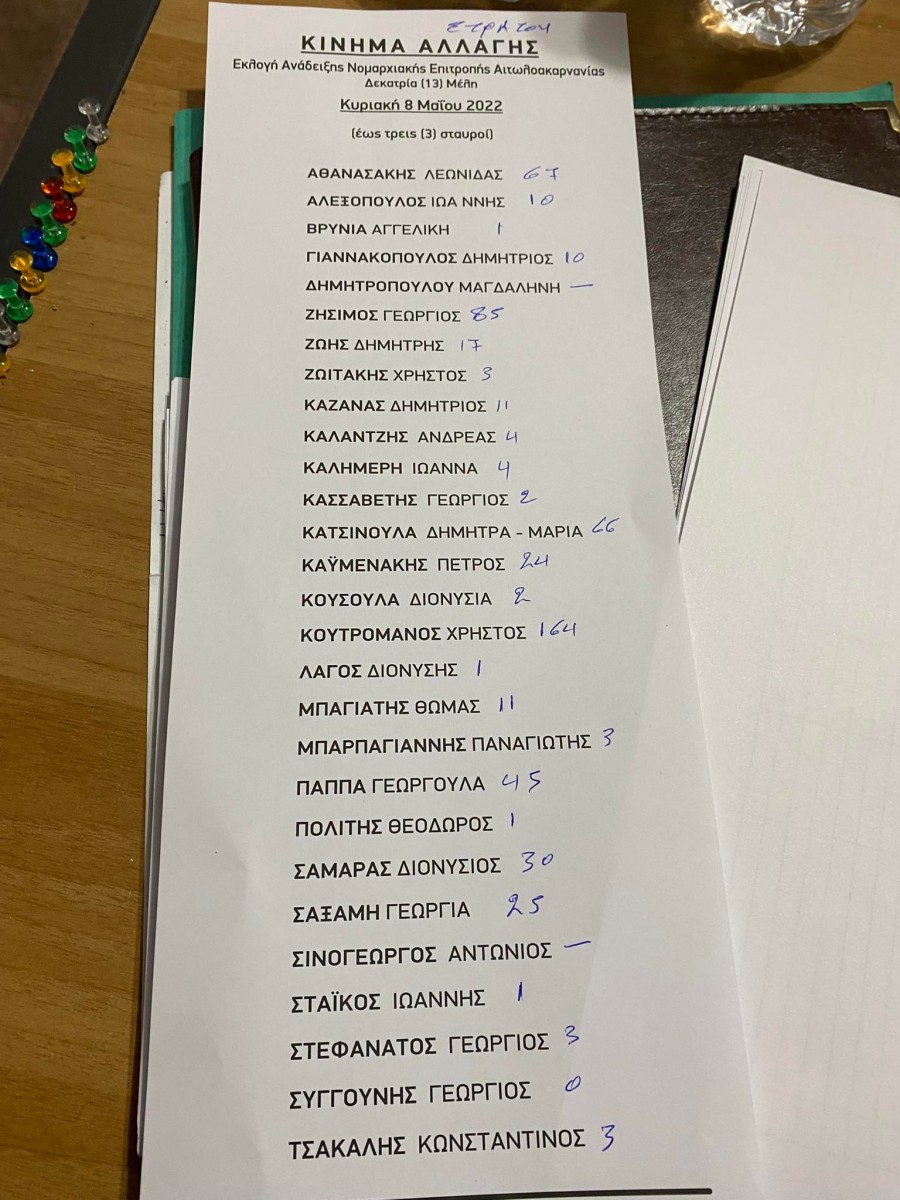 ΣΤΡΑΤΟΥ
ΚΙΝΗΜΑ ΑΛΛΑΓΗΣ
Εκλογή Ανάδειξης Νομαρχιακής Επιτροπής Αιτωλοακαρνανίας
Δεκατρία (13) Μέλη
Κυριακή 8 Μαΐου 2022
(έως τρεις (3) σταυροί)
ΑΘΑΝΑΣΑΚΗΣ ΛΕΩΝΙΔΑΣ 67
ΑΛΕΞΟΠΟΥΛΟΣ ΙΩΑ ΝΝΗΣ 10
ΒΡΥΝΙΑ ΑΓΓΕΛΙΚΗ 1
ΓΙΑΝΝΑΚΟΠΟΥΛΟΣ ΔΗΜΗΤΡΙΟΣ 10
ΔΗΜΗΤΡΟΠΟΥΛΟΥ ΜΑΓΔΑΛΗΝΗ —
ΖΗΣΙΜΟΣ ΓΕΩΡΓΙΟΣ 85
ΖΩΗΣ ΔΗΜΗΤΡΗΣ 17
ΖΩΙΤΑΚΗΣ ΧΡΗΣΤΟΣ 3
ΚΑΖΑΝΑΣ ΔΗΜΗΤΡΙΟΣ 11
ΚΑΛΑΝΤΖΗΣ ΑΝΔΡΕΑΣ 4
ΚΑΛΗΜΕΡΗ ΙΩΑΝΝΑ 4
ΚΑΣΣΑΒΕΤΗΣ ΓΕΩΡΓΙΟΣ 2
ΚΑΤΣΙΝΟΥΛΑ ΔΗΜΗΤΡΑ - ΜΑΡΙΑ
ΚΑΫΜΕΝΑΚΗΣ ΠΕΤΡΟΣ 24
ΚΟΥΣΟΥΛΑ ΔΙΟΝΥΣΙΑ 2
ΚΟΥΤΡΟΜΑΝΟΣ ΧΡΗΣΤΟΣ 164
ΛΑΓΟΣ ΔΙΟΝΥΣΗΣ 1
ΜΠΑΓΙΑΤΗΣ ΘΩΜΑΣ 11
ΜΠΑΡΠΑΓΙΑΝΝΗΣ ΠΑΝΑΓΙΩΤΗΣ 3
ΠΑΠΠΑ ΓΕΩΡΓΟΥΛΑ 45
ΠΟΛΙΤΗΣ ΘΕΟΔΩΡΟΣ 1
ΣΑΜΑΡΑΣ ΔΙΟΝΥΣΙΟΣ 30
ΣΑΞΑΜΗ ΓΕΩΡΓΙΑ 25
ΣΙΝΟΓΕΩΡΓΟΣ ΑΝΤΩΝΙΟΣ —
ΣΤΑΪΚΟΣ ΙΩΑΝΝΗΣ 1
ΣΤΕΦΑΝΑΤΟΣ ΓΕΩΡΓΙΟΣ 3
ΣΥΓΓΟΥΝΗΣ ΓΕΩΡΓΙΟΣ 0
ΤΣΑΚΑΛΗΣ ΚΩΝΣΤΑΝΤΙΝΟΣ 3